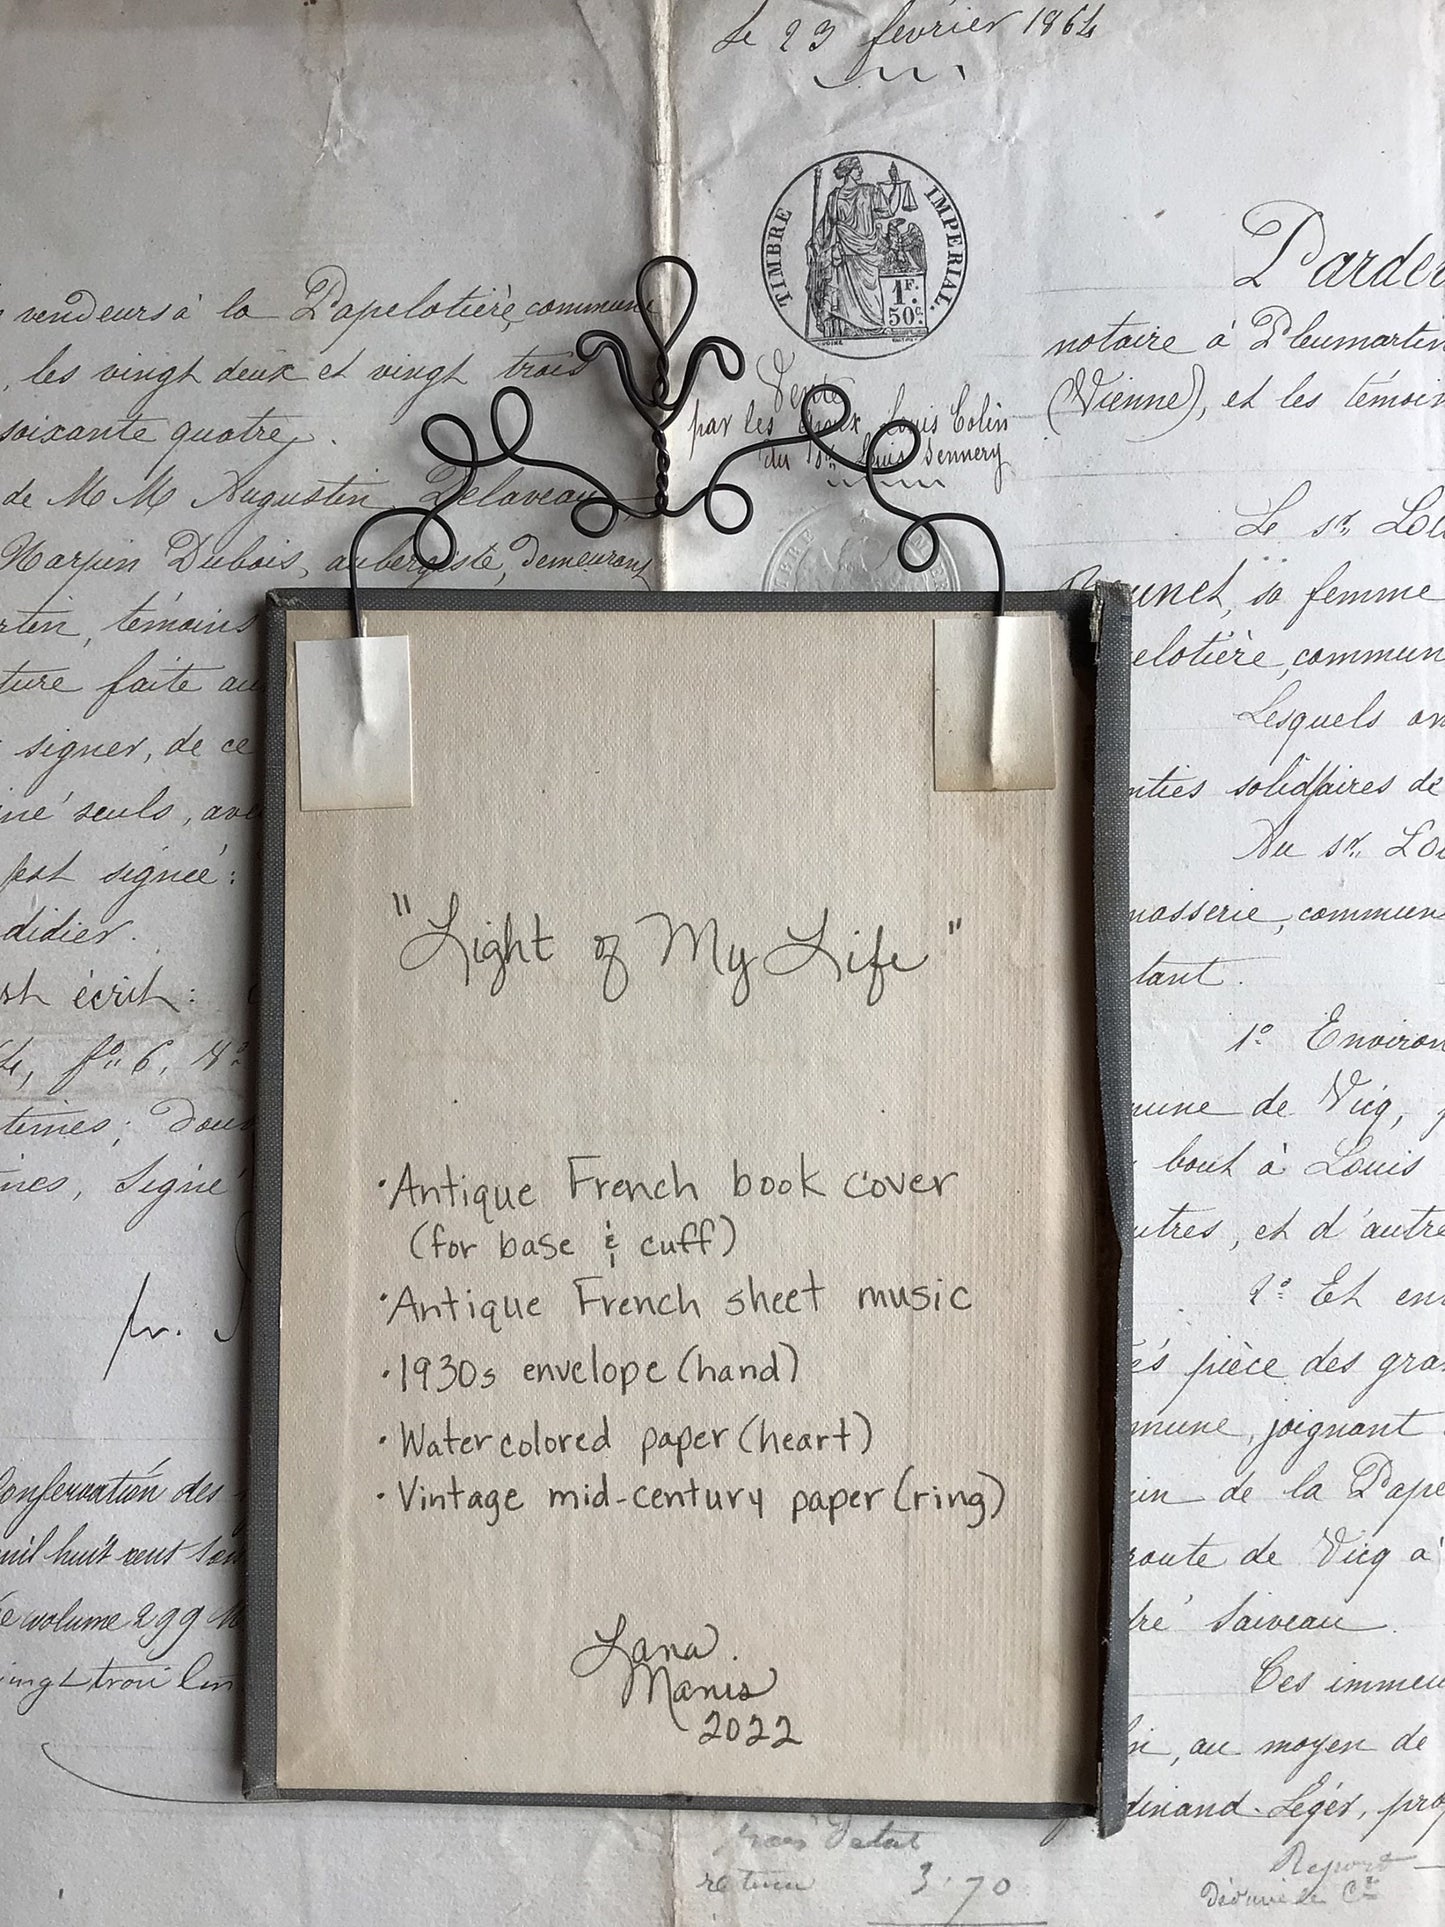 le 23 février 1864
TIMBRE IMPERIAL.
1F.
50c.
vendeurs à la Papelotière, commune
, les vingt deux et vingt trois
soixante quatre.
de M M Augustin Delaveau,
Marpin Dubois, aubergiste, demeurant
témoins
ture faite au
signer, de ce
né seuls, ave
est signée:
didier.
st écrit:
4, fo. 6,
Signé
Conservation des
mil huit cent
volume 299
vingt trois
Vente
par les époux Louis Colin
du Sr. Louis Sennery
Parde
notaire à Pleumartin
(Vienne), et les témoin
Le sr. Lou
unet, sa femme
elotière, commun
Lesquels on
nties solidaires de
Au sr. Lou
nasserie, commun
tant.
1o Environ
mune de Vicq,
bout à Louis
utres, et d'autre
2o Et en
pièce des gra
mmune, joignant
in de la Pape
route de Vicq à
dré Saiveau
Ces immeu
n, au moyen de
dinand Léger, pro
"Light of My Life"
• Antique French book cover
(for base & cuff)
• Antique French sheet music
• 1930s envelope (hand)
• Watercolored paper (heart)
• Vintage mid-century paper (ring)
Lana
Manis
2022
3.70